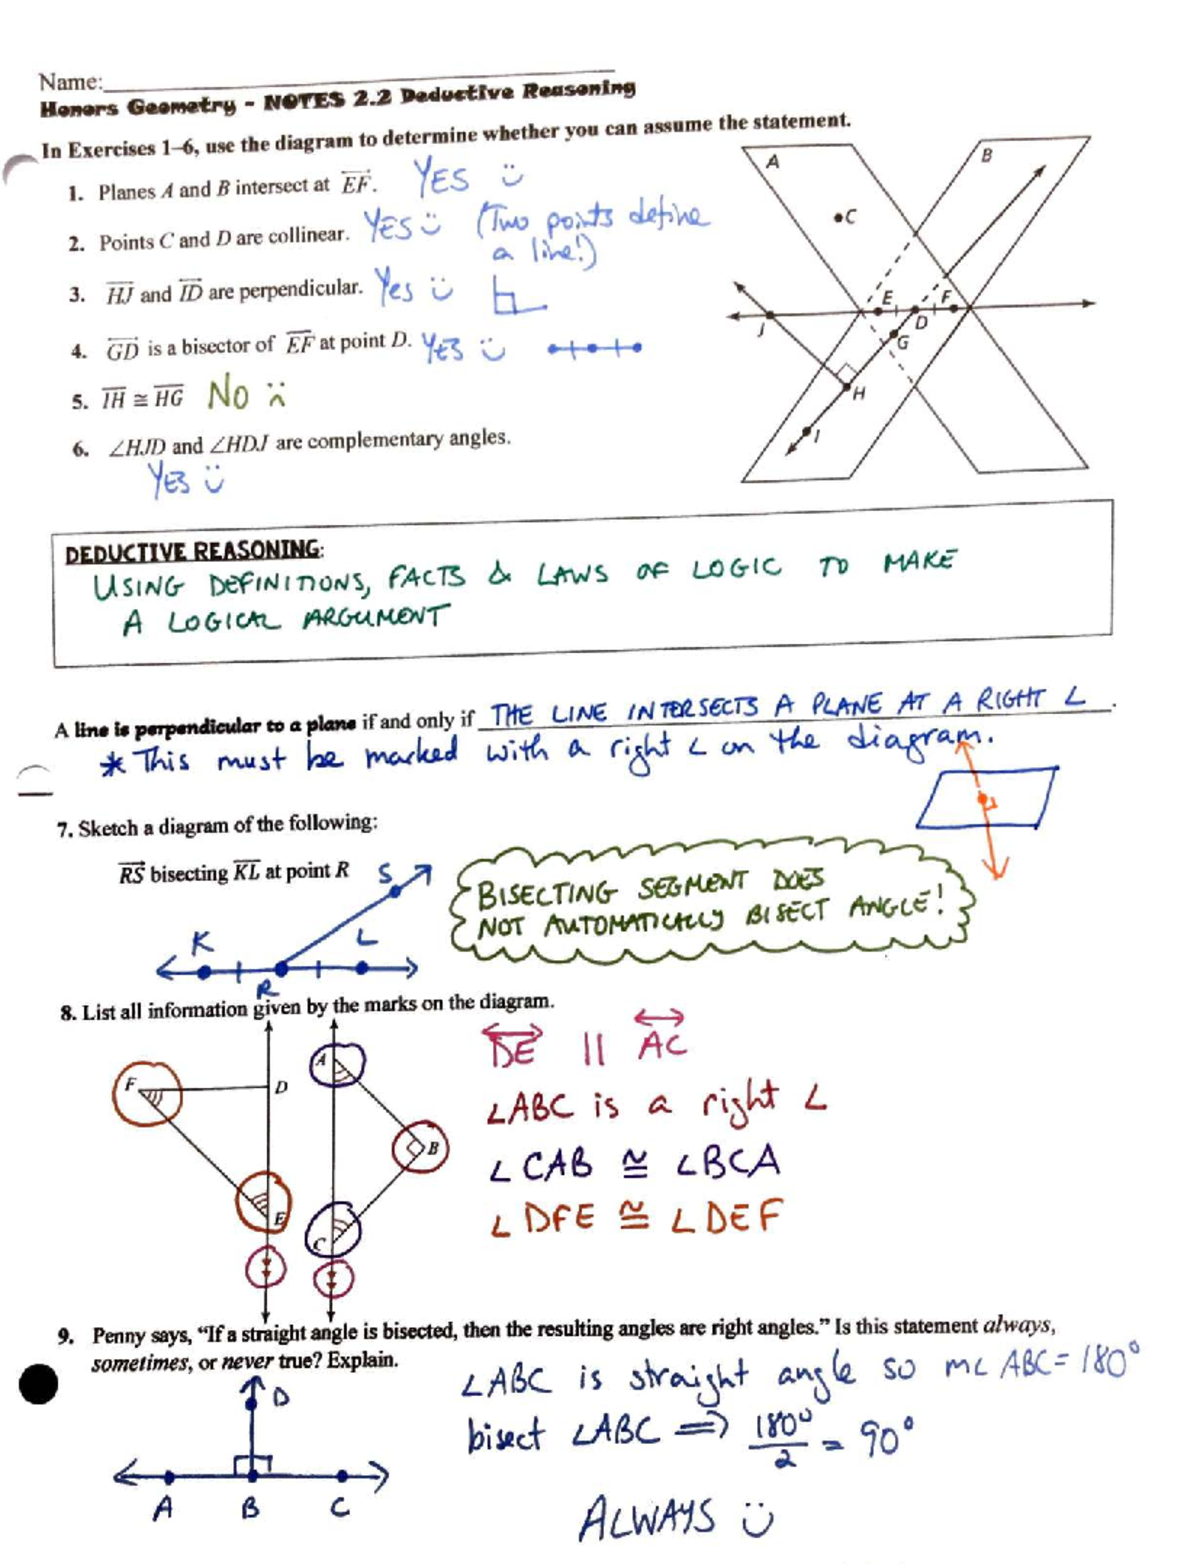 Name:
Honors Geometry - NOTES 2.2 Deductive Reasoning
In Exercises 1–6, use the diagram to determine whether you can assume the statement.
1. Planes A and B intersect at EF. YES
2. Points C and D are collinear. YES (Two points define
a line!)
3. HJ and ID are perpendicular. Yes
4. GD is a bisector of EF at point D. YES
5. IH ≅ HG NO
6. ∠HJD and ∠HDJ are complementary angles.
YES
A
B
C
E
F
J
D
G
H
I
DEDUCTIVE REASONING:
USING DEFINITIONS, FACTS & LAWS OF LOGIC TO MAKE
A LOGICAL ARGUMENT
A line is perpendicular to a plane if and only if THE LINE INTERSECTS A PLANE AT A RIGHT ∠.
* This must be marked with a right ∠ on the diagram.
7. Sketch a diagram of the following:
RS bisecting KL at point R
S
K
L
R
BISECTING SEGMENT DOES
NOT AUTOMATICALLY BISECT ANGLE!
8. List all information given by the marks on the diagram.
F
D
E
A
B
C
DE || AC
∠ABC is a right ∠
∠CAB ≅ ∠BCA
∠DFE ≅ ∠DEF
9. Penny says, “If a straight angle is bisected, then the resulting angles are right angles.” Is this statement always,
sometimes, or never true? Explain.
D
A B C
∠ABC is straight angle so m∠ABC = 180°
bisect ∠ABC ⇒ 180°/2 = 90°
ALWAYS